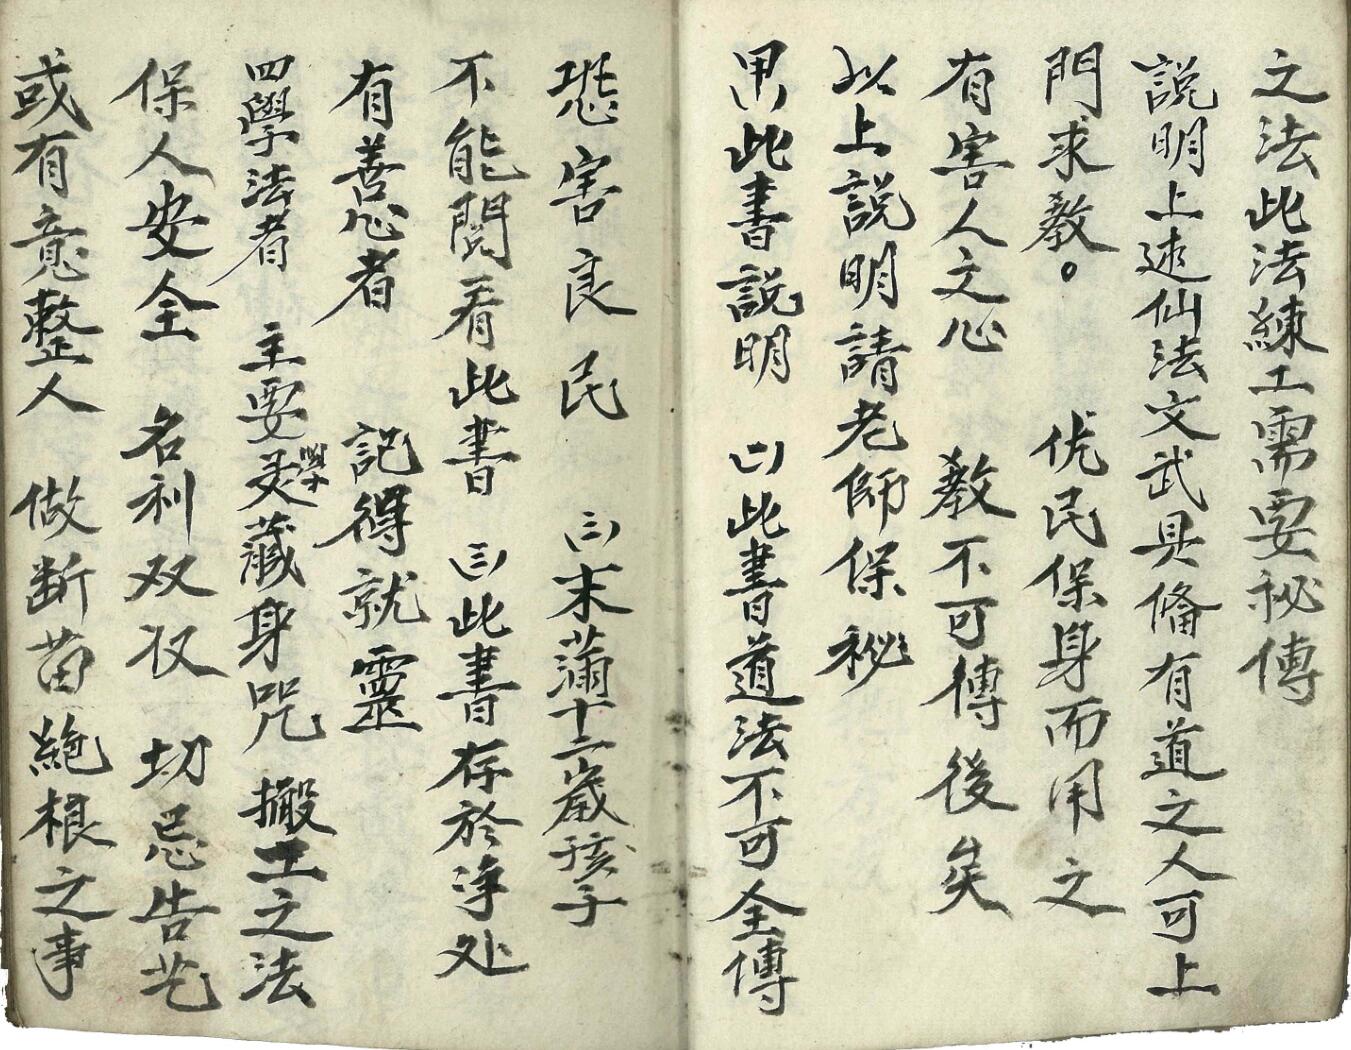 之法此法練工需要秘傳
説明上述仙法文武具俻有道之人可上
門求教。 优民保身而用之
有害人之心 教不可傳後矣
以上説明請老師保秘
用此書説明 (一)此書道法不可全傳
恐害良民 (二)未滿十二歲孩子
不能閱看此書 (三)此書存於净处
有善心者 記得就靈
四學法者 主要學藏身咒 搬工之法
保人安全 名利双收 切忌告
或有意整人 做断苗絶根之事